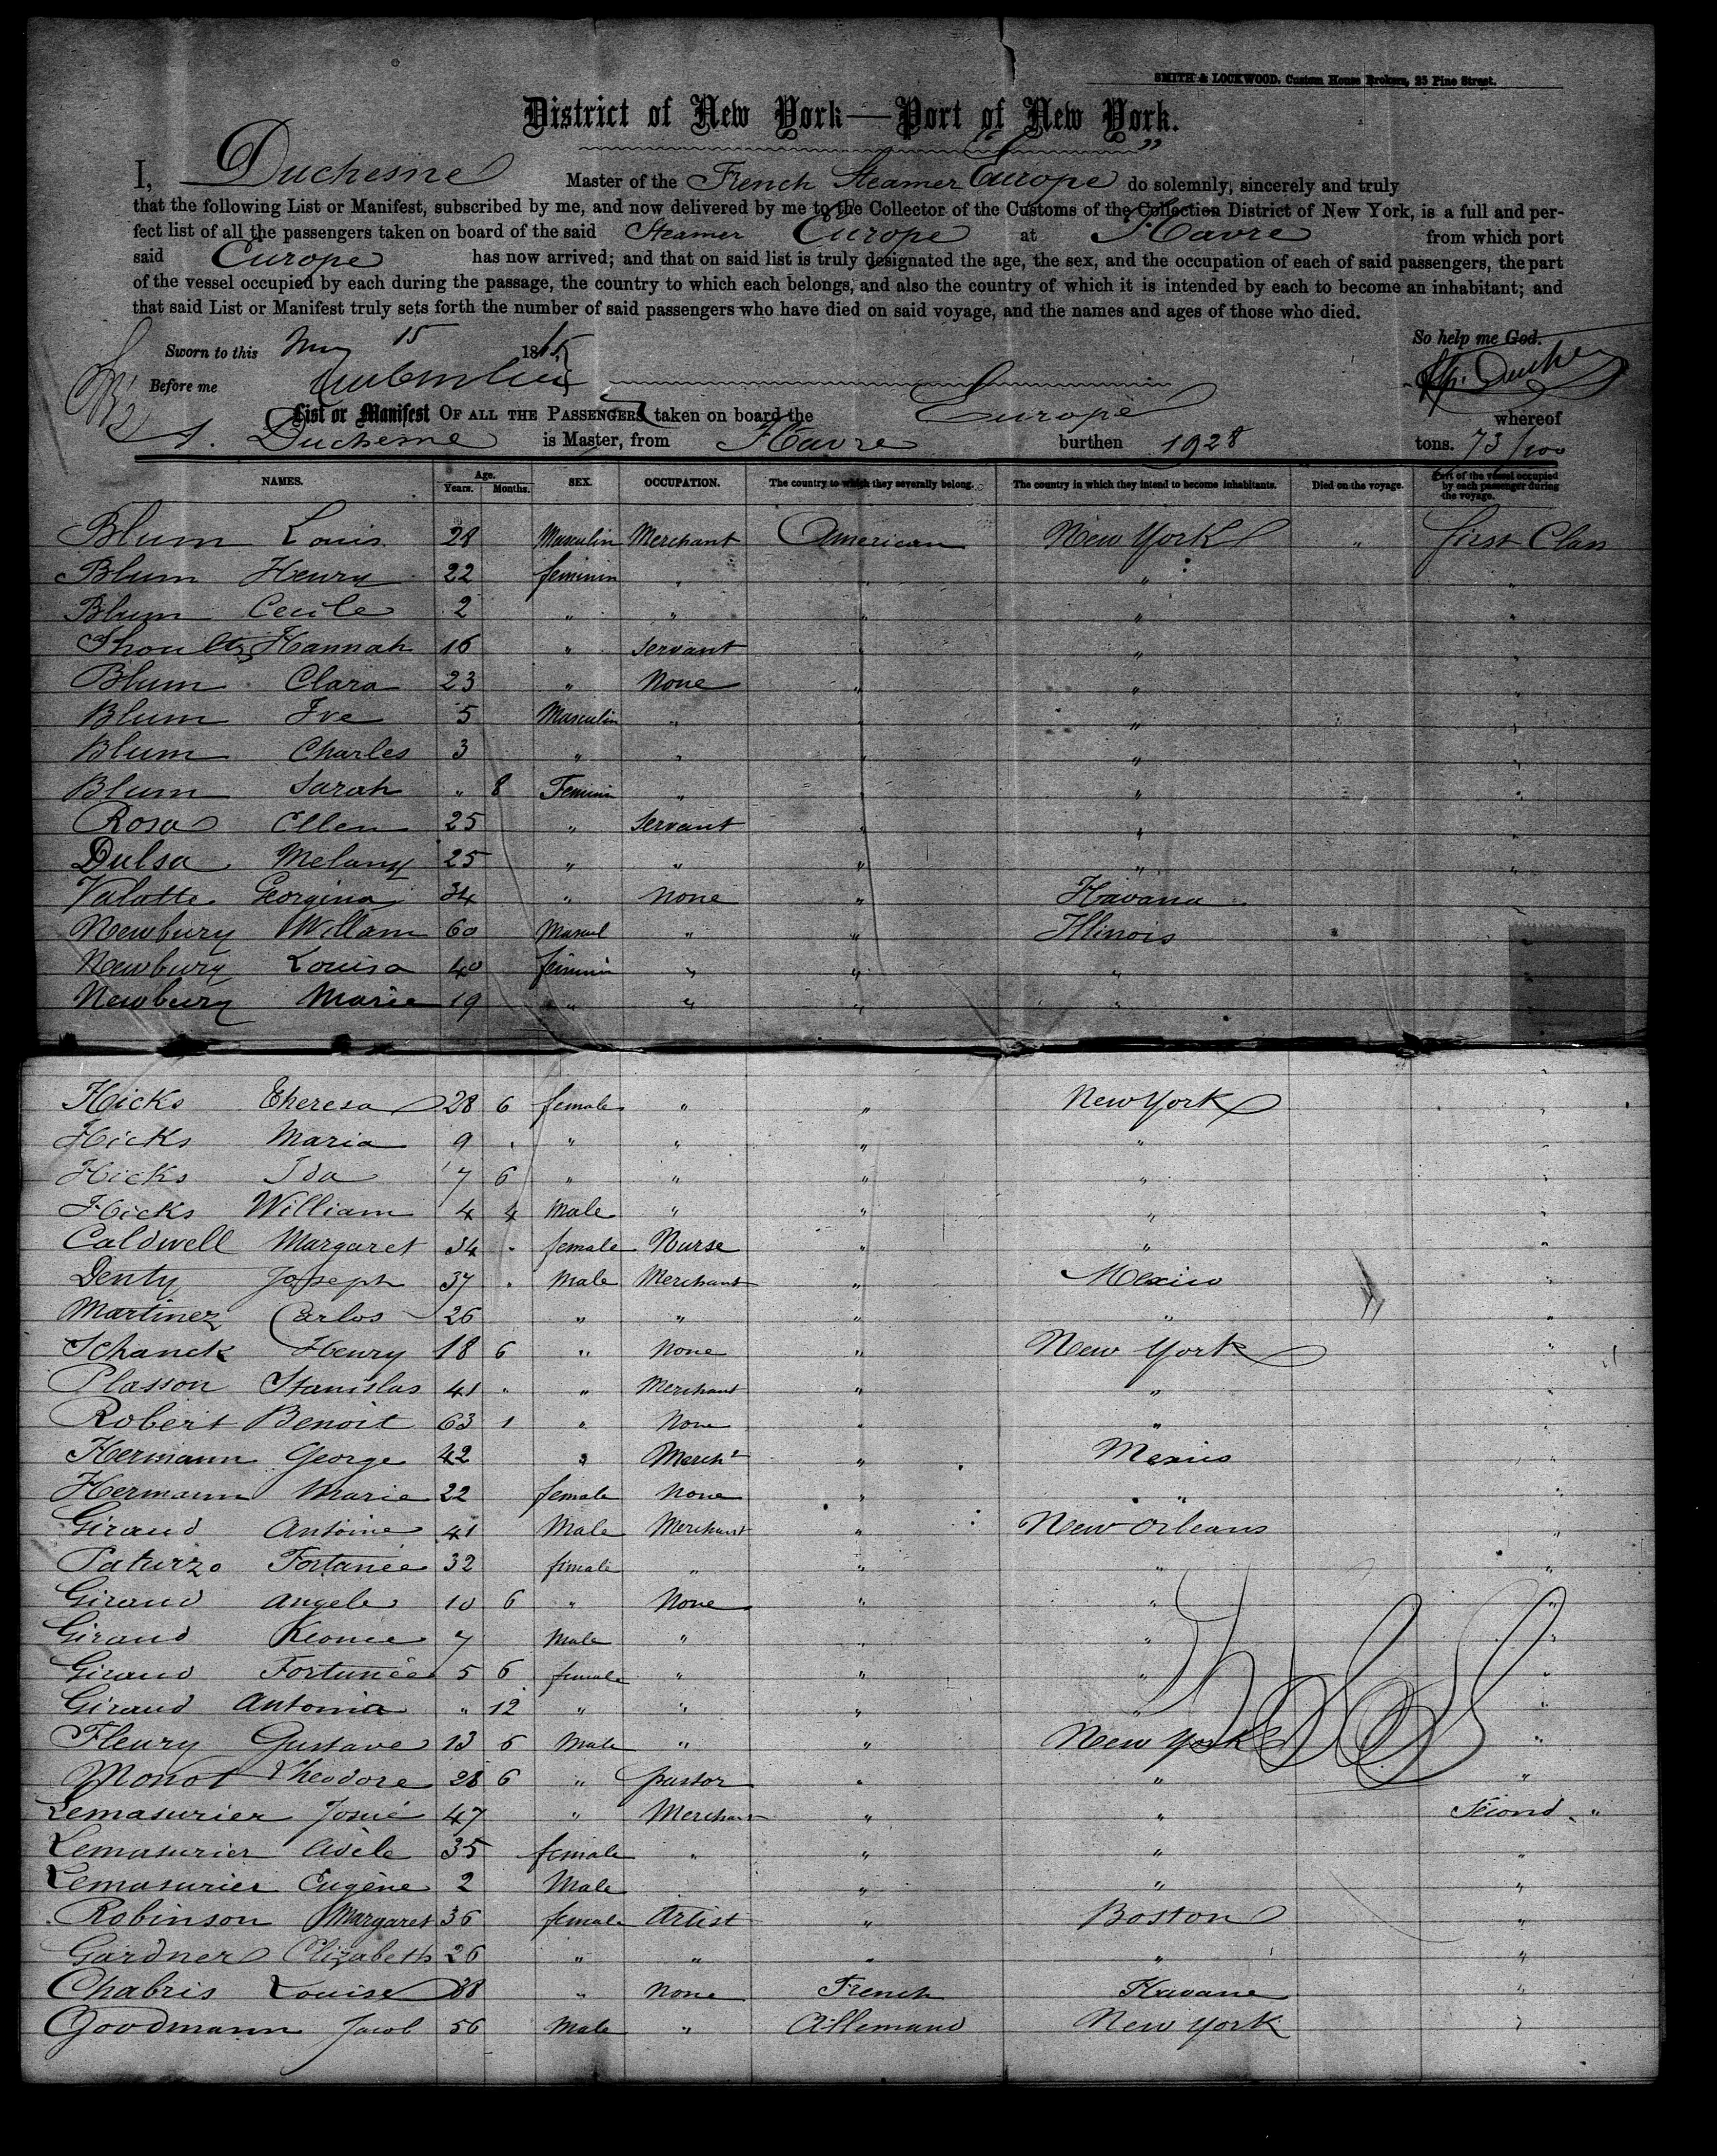 SMITH & LOCKWOOD, Custom House Brokers, 25 Pine Street.
District of New York—Port of New York.
I, Duchesne Master of the French Steamer "Europe" do solemnly, sincerely and truly
that the following List or Manifest, subscribed by me, and now delivered by me to the Collector of the Customs of the Collection District of New York, is a full and per-
fect list of all the passengers taken on board of the said Steamer Europe at Havre from which port
said Europe has now arrived; and that on said list is truly designated the age, the sex, and the occupation of each of said passengers, the part
of the vessel occupied by each during the passage, the country to which each belongs, and also the country of which it is intended by each to become an inhabitant; and
that said List or Manifest truly sets forth the number of said passengers who have died on said voyage, and the names and ages of those who died.
So help me God.
Sworn to this May 15 1865
Before me
List or Manifest OF ALL THE PASSENGERS taken on board the Europe whereof
A. Duchesne is Master, from Havre burthen 1928 tons. 73/100
NAMES. Age. Years. Months. SEX. OCCUPATION. The country to which they severally belong. The country in which they intend to become inhabitants. Died on the voyage. Part of the vessel occupied by each passenger during the voyage.
Blum Louis 28 Masculin Merchant American New York " First Class
Blum Henry 22 feminin " " " "
Blum Cecile 2 " " " " "
Hannah 16 " Servant " " "
Blum Clara 23 " None " " "
Blum Ive 5 Masculin " " " "
Blum Charles 3 " " " " "
Blum Sarah " 8 Feminin " " " "
Rosa Ellen 25 " Servant " " "
Dulsa Melany 25 " " " " "
Valatte Georgina 34 " None " Havana
Newbury Willam 60 Mascul " " Illinois
Newbury Louisa 40 feminin " " "
Newbury Marie 19 " " " "
Hicks Theresa 28 6 female " " New York "
Hicks Maria 9 " " " " " "
Hicks Ida 7 6 " " " " "
Hicks William 4 4 Male " " " "
Caldwell Margaret 34 " female Nurse " " "
Denty Joseph 37 " Male Merchant " Mexico "
Martinez Carlos 26 " " " " "
Schanck Henry 18 6 " None " New York "
Plasson Stanislas 41 " " Merchant " " "
Robert Benoit 63 1 " None " " "
Hermann George 42 " Mercht " Mexico "
Hermann Marie 22 female None " " "
Giraud Antoine 41 Male Merchant " New Orleans "
Paturzo Fortunée 32 female " " " "
Giraud Angele 10 6 " None " " "
Giraud Kleonie 7 Male " " " "
Giraud Fortunée 5 6 female " " " "
Giraud Antonia " 12 " " " " "
Fleury Gustave 13 6 Male " " New York "
Monot Theodore 28 6 " pastor " " "
Lemasurier Josué 47 " Merchant " " Second "
Lemasurier Adèle 35 female " " " "
Lemasurier Eugène 2 Male " " "
Robinson Margaret 36 female Artist " Boston "
Gardner Elizabeth 26 " " " " "
Chabris Louise 38 " None French Havane "
Goodmann Jacob 56 Male " Allemand New York "